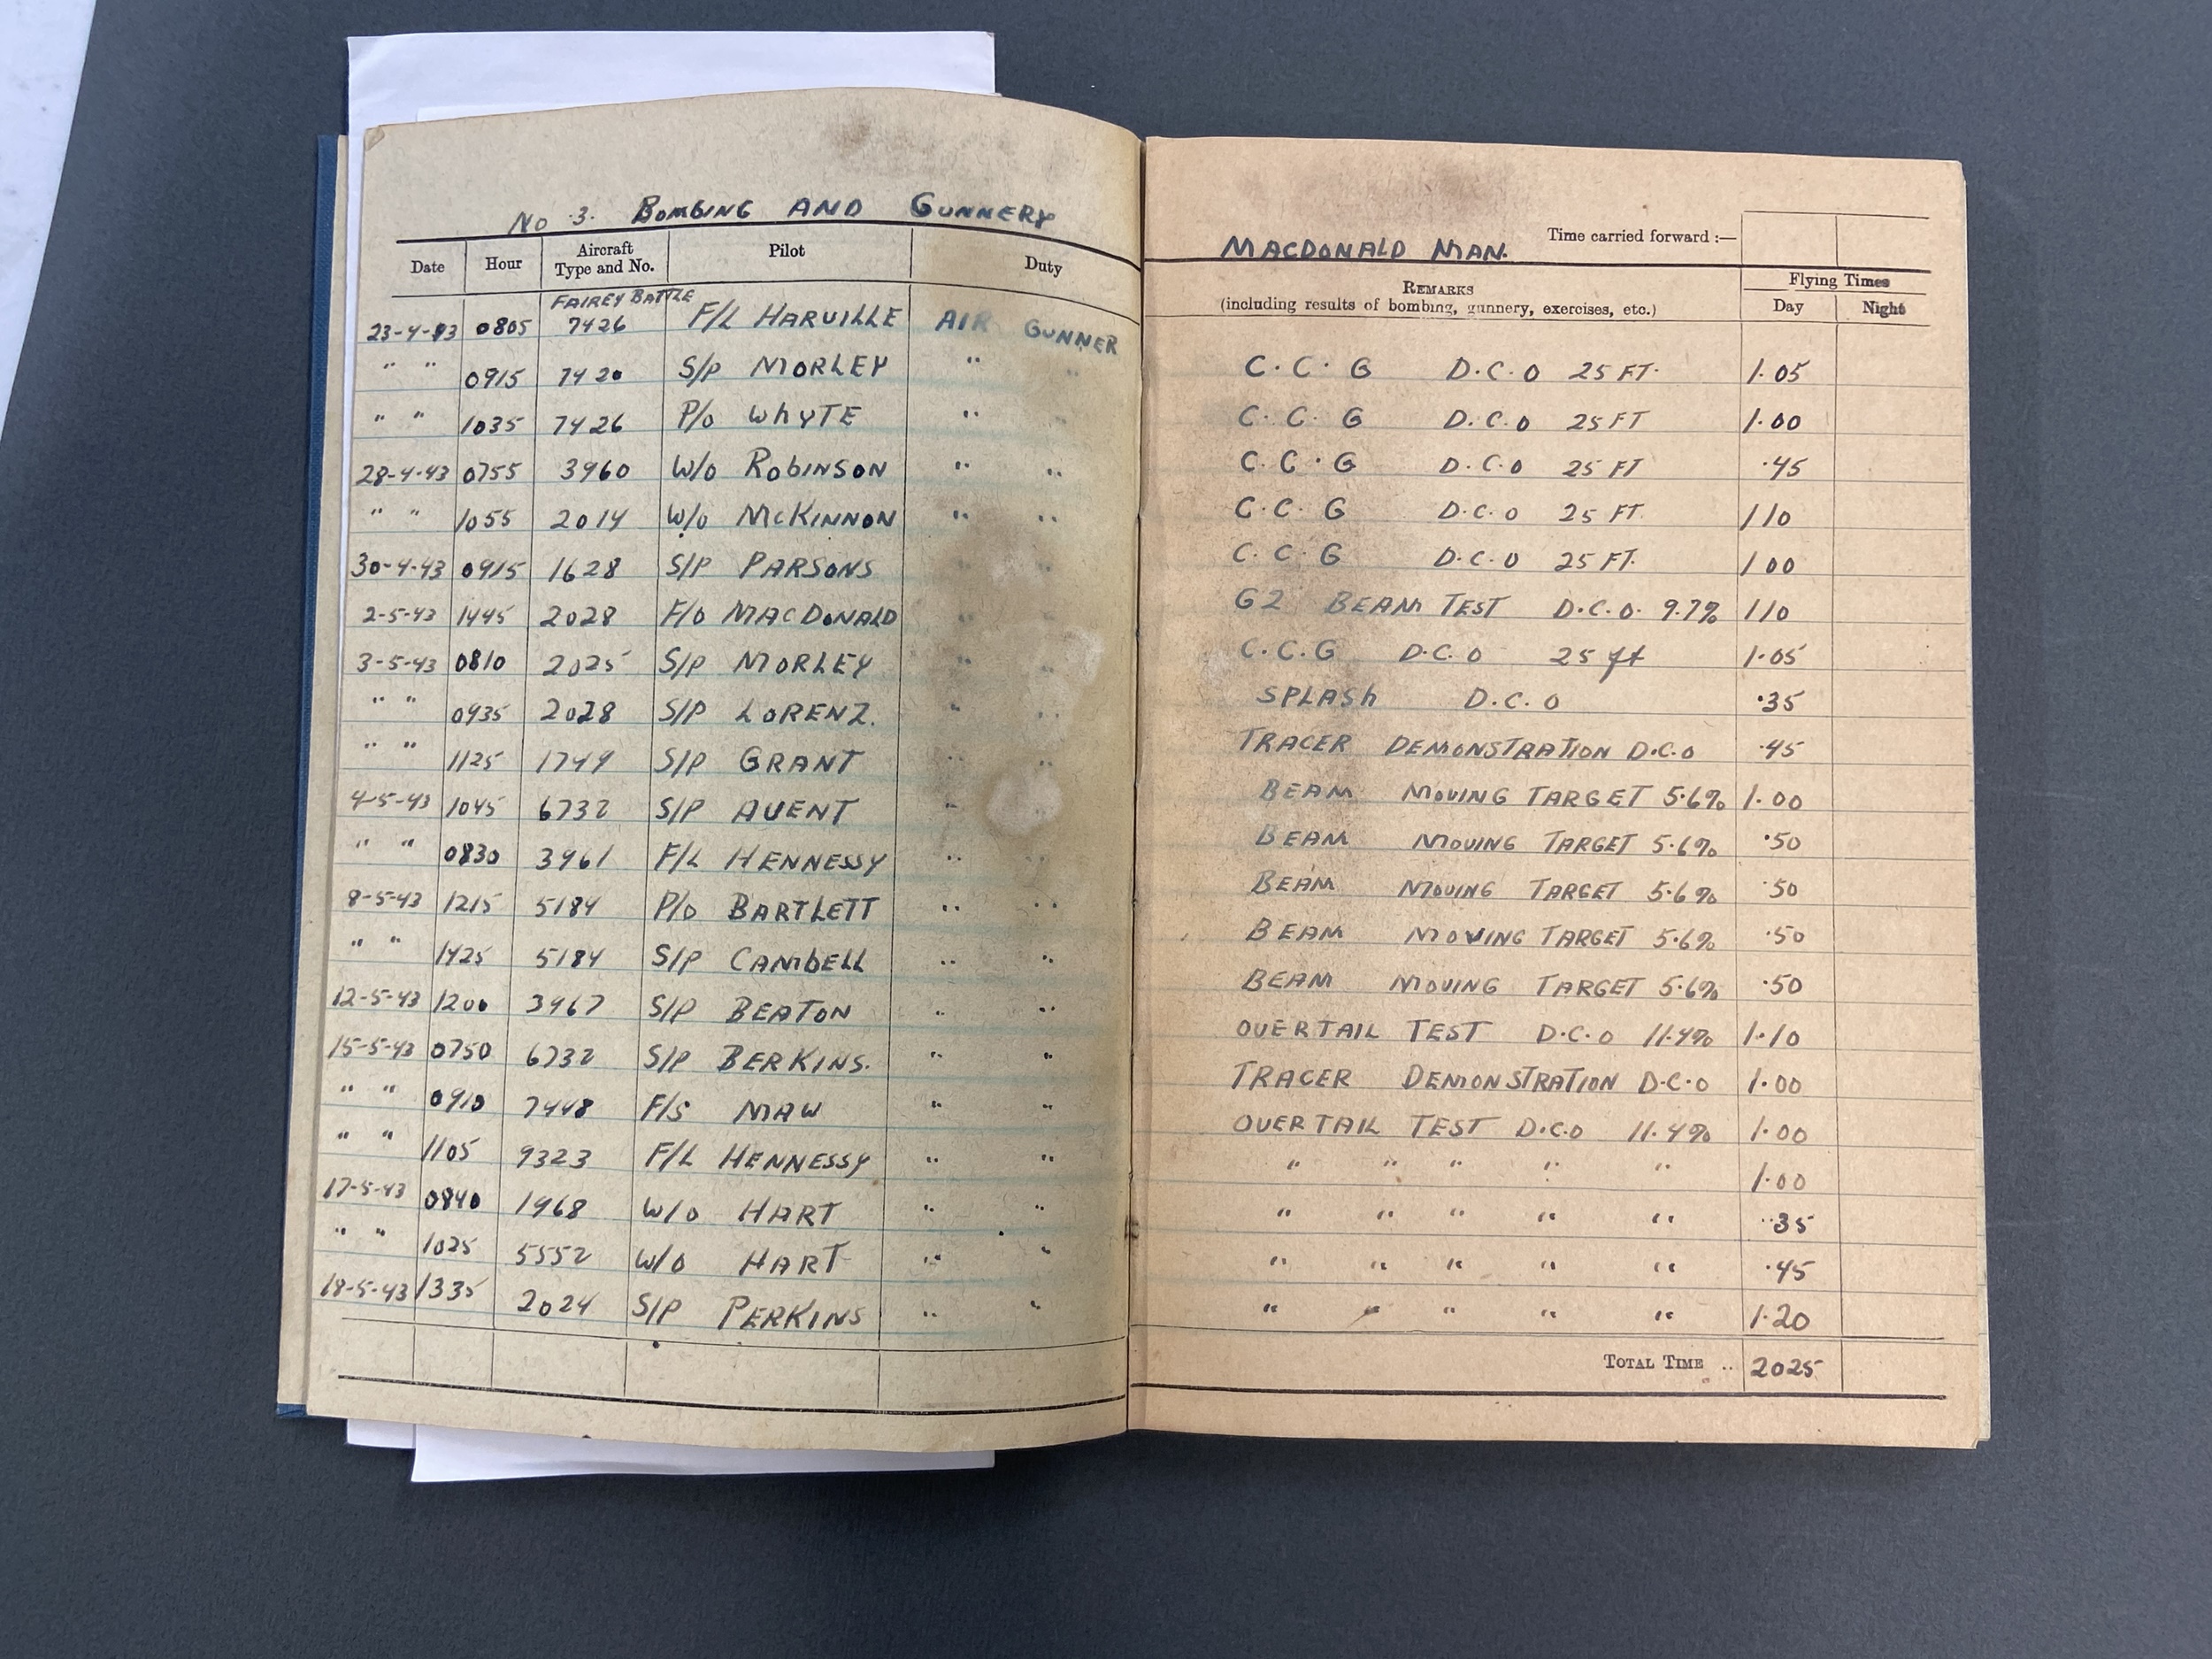 No 3. BOMBING AND GUNNERY
Date Hour Aircraft Type and No. Pilot Duty
FAIREY BATTLE
23-4-43 0805 7426 F/L HARVILLE AIR GUNNER
" " 0915 7420 S/P MORLEY " "
" " 1035 7426 P/O WhYTE " "
28-4-43 0755 3960 W/O RObINSON " "
" " 1055 2014 W/O McKINNON " "
30-4-43 0915 1628 S/P PARSONS " "
2-5-43 1445 2028 F/O MACDONALD " "
3-5-43 0810 2025 S/P MORLEY " "
" " 0935 2028 S/P LORENZ. " "
" " 1125 1749 S/P GRANT " "
4-5-43 1045 6732 S/P AVENT " "
" " 0830 3961 F/L HENNESSY " "
8-5-43 1215 5184 P/O BARTLETT " "
" " 1425 5184 S/P CAMBELL " "
12-5-43 1200 3967 S/P BEATON " "
15-5-43 0750 6732 S/P BERKINS. " "
" " 0910 7448 F/S MAW " "
" " 1105 9323 F/L HENNESSY " "
17-5-43 0840 1968 W/O HART " "
" " 1025 5552 W/O HART " "
18-5-43 1335 2024 S/P PERKINS " "
MACDONALD MAN. Time carried forward :—
REMARKS Flying Times
(including results of bombing, gunnery, exercises, etc.) Day Night
C.C.G D.C.O 25 FT. 1.05
C.C.G D.C.O 25 FT 1.00
C.C.G D.C.O 25 FT .45
C.C.G D.C.O 25 FT. 1 10
C.C.G D.C.O 25 FT. 1 00
G2 BEAM TEST D.C.O. 9.7% 1 10
C.C.G D.C.O 25 ft 1.05
SPLASh D.C.O .35
TRACER DEMONSTRATION D.C.O .45
BEAM MOVING TARGET 5.6% 1.00
BEAM MOVING TARGET 5.6% .50
BEAM MOVING TARGET 5.6% .50
BEAM MOVING TARGET 5.6% .50
BEAM MOVING TARGET 5.6% .50
OVERTAIL TEST D.C.O 11.4% 1.10
TRACER DEMONSTRATION D.C.O 1.00
OVERTAIL TEST D.C.O 11.4% 1.00
" " " " " 1.00
" " " " " .35
" " " " " .45
" " " " " 1.20
TOTAL TIME .. 2025